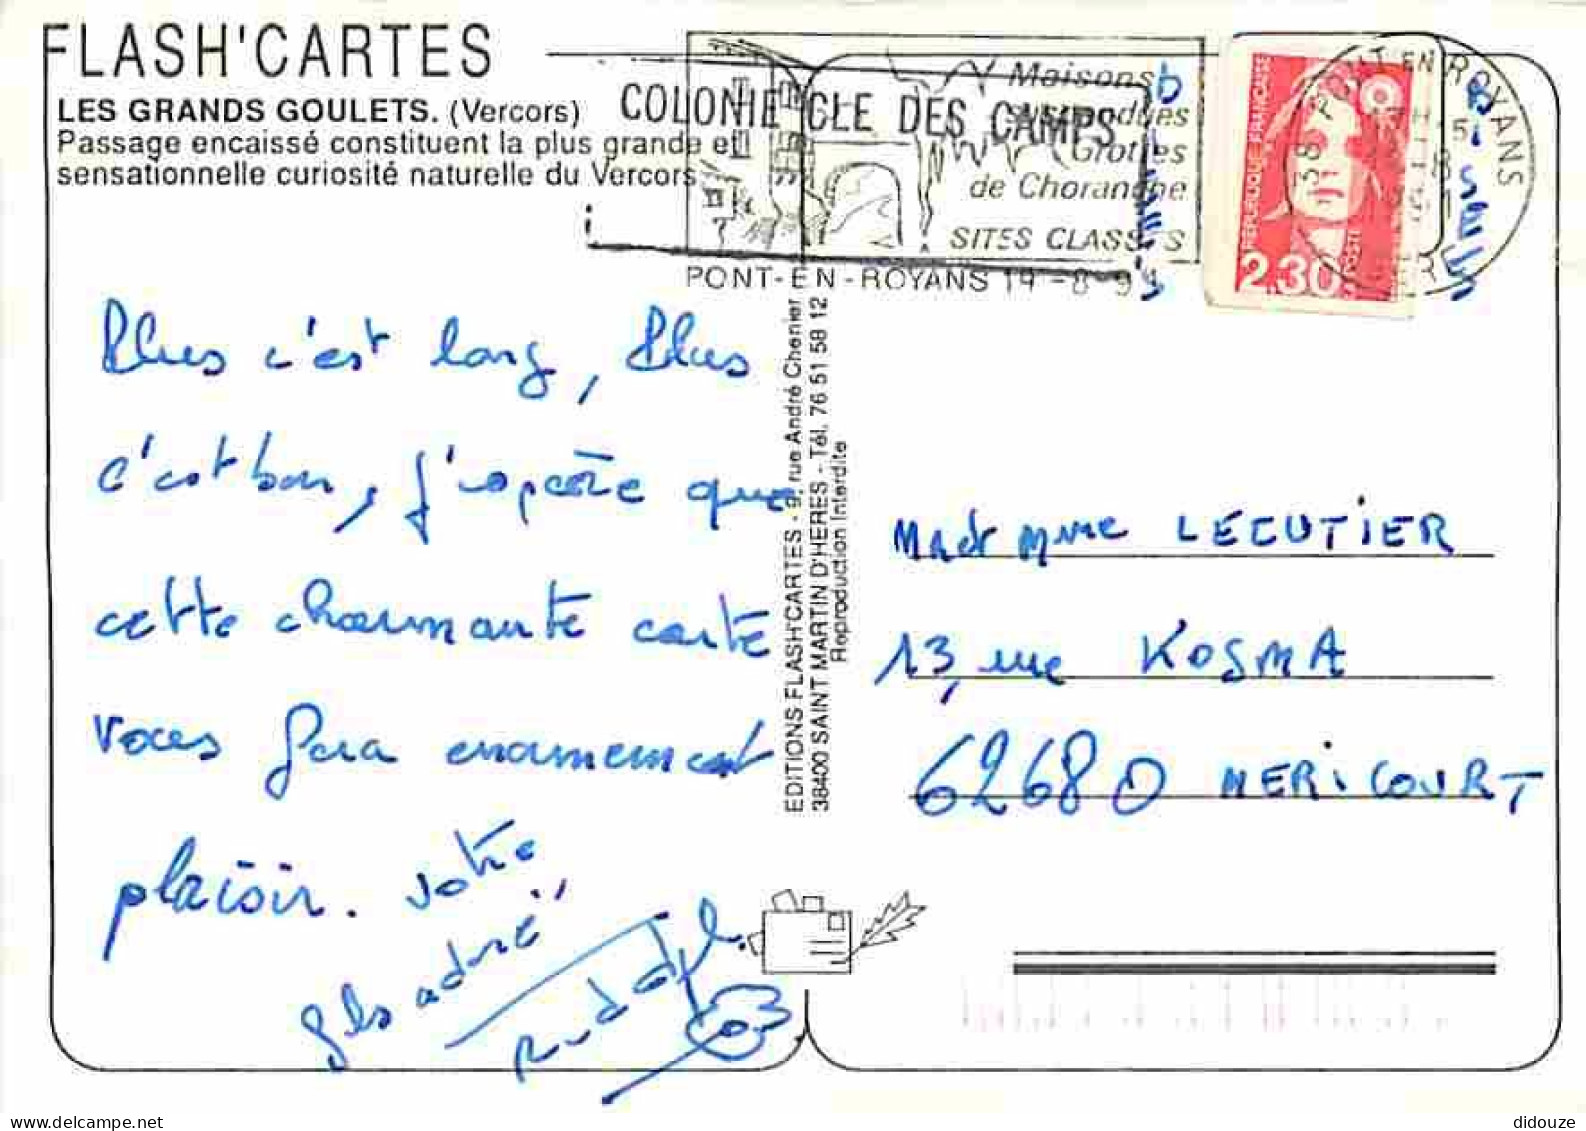 FLASH'CARTES
LES GRANDS GOULETS. (Vercors)
Passage encaissé constituent la plus grande et
sensationnelle curiosité naturelle du Vercors
COLONIE GLE DES CAMPS
Maisons
Suspendues
Grottes
de Choranche
SITES CLASSÉS
PONT-EN-ROYANS 19-8-91
38 PONT EN ROYANS
REPUBLIQUE FRANÇAISE
LA POSTE
2,30
Plus c'est long, Plus
c'est bon, j'espère que
cette charmante carte
vous fera enormement
plaisir. votre
fils adoré
Rudolph
EDITIONS FLASH'CARTES - 9, rue André Chenier
38400 SAINT MARTIN D'HERES - Tél. 76 51 58 12
Reproduction Interdite
M et Mme LECUTIER
13, rue KOSMA
62680 MERICOURT
didouze